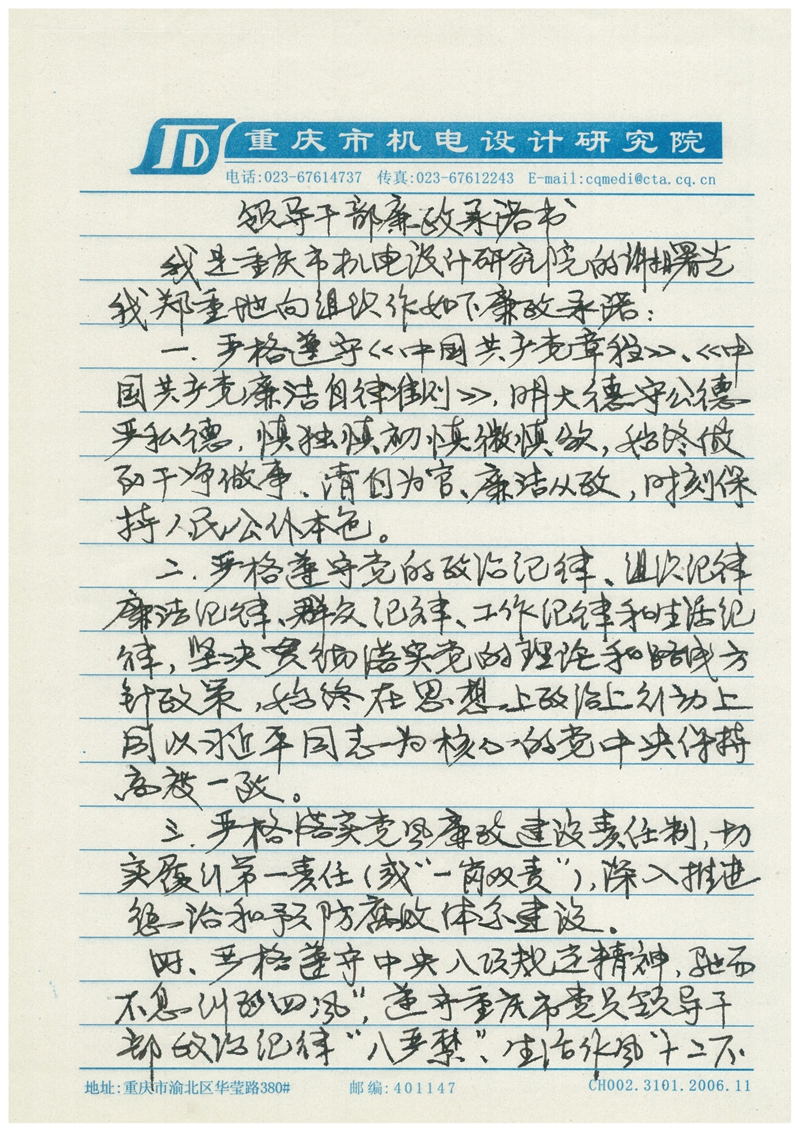 重庆市机电设计研究院
电话:023-67614737 传真:023-67612243 E-mail:cqmedi@cta.cq.cn
领导干部廉政承诺书
我是重庆市机电设计研究院的谢曙光
我郑重地向组织作如下廉政承诺:
一.严格遵守《中国共产党章程》、《中
国共产党廉洁自律准则》,明大德守公德
严私德,慎独慎初慎微慎欲,始终做
到干净做事、清白为官、廉洁从政,时刻保
持人民公仆本色。
二.严格遵守党的政治纪律、组织纪律
廉洁纪律、群众纪律、工作纪律和生活纪
律,坚决贯彻落实党的理论和路线方
针政策,始终在思想上政治上行动上
同以习近平同志为核心的党中央保持
高度一致。
三.严格落实党风廉政建设责任制,切
实履行第一责任(或"一岗双责"),深入推进
惩治和预防腐败体系建设。
四、严格遵守中央八项规定精神,驰而
不息纠正四风",遵守重庆市党员领导干
部政治纪律"八严禁"、生活作风"十二不
地址:重庆市渝北区华莹路380# 邮编:401147 CH002.3101.2006.11